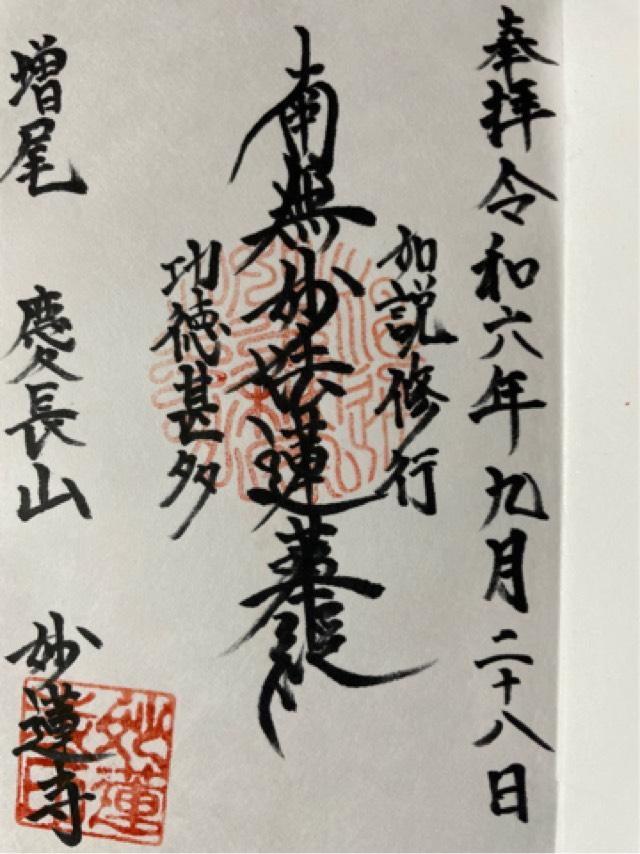 奉拝 令和六年九月二十八日
如説修行
南無妙法蓮華経
功徳甚多
増尾 慶長山 妙蓮寺